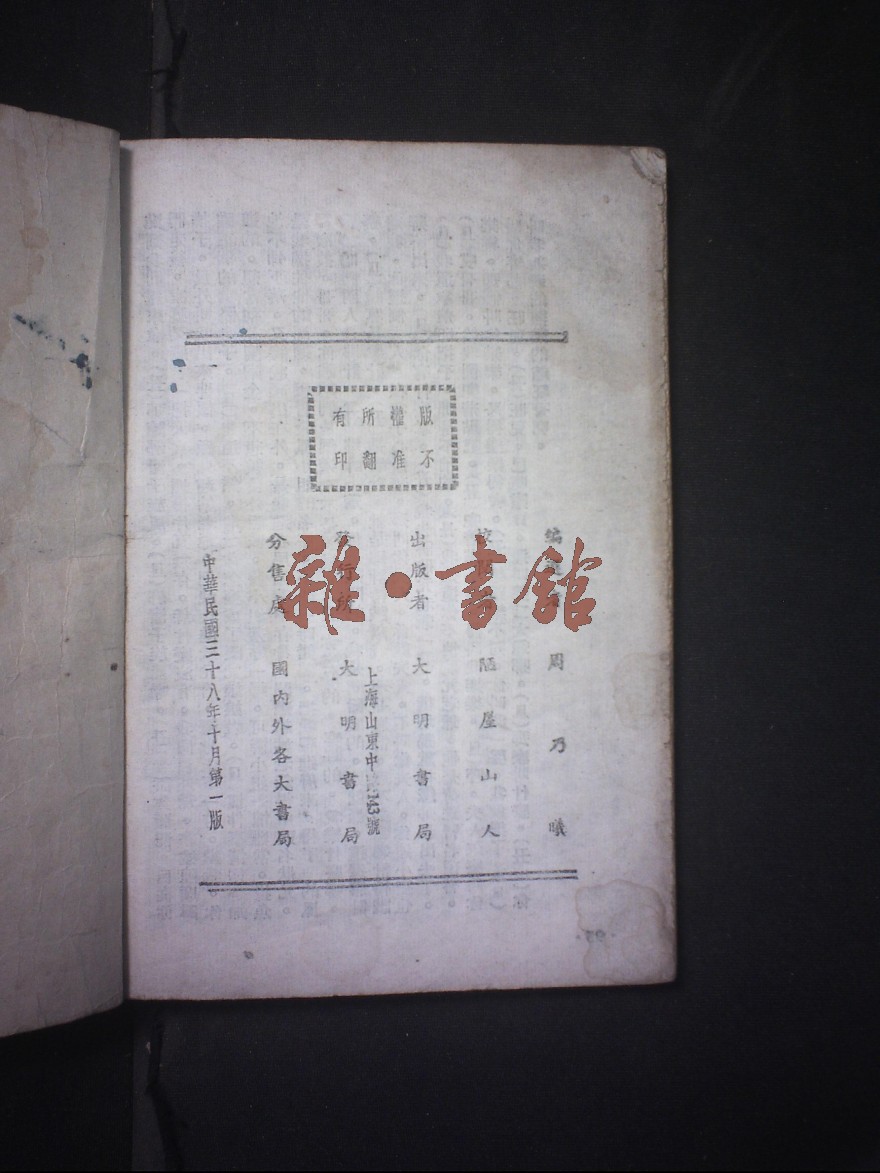 版權所有
不准翻印
編 周乃曦
校 陋屋山人
出版者 大明書局
上海山東中 號
發行所 大明書局
分售處 國內外各大書局
中華民國三十八年十月第一版
雜·書館